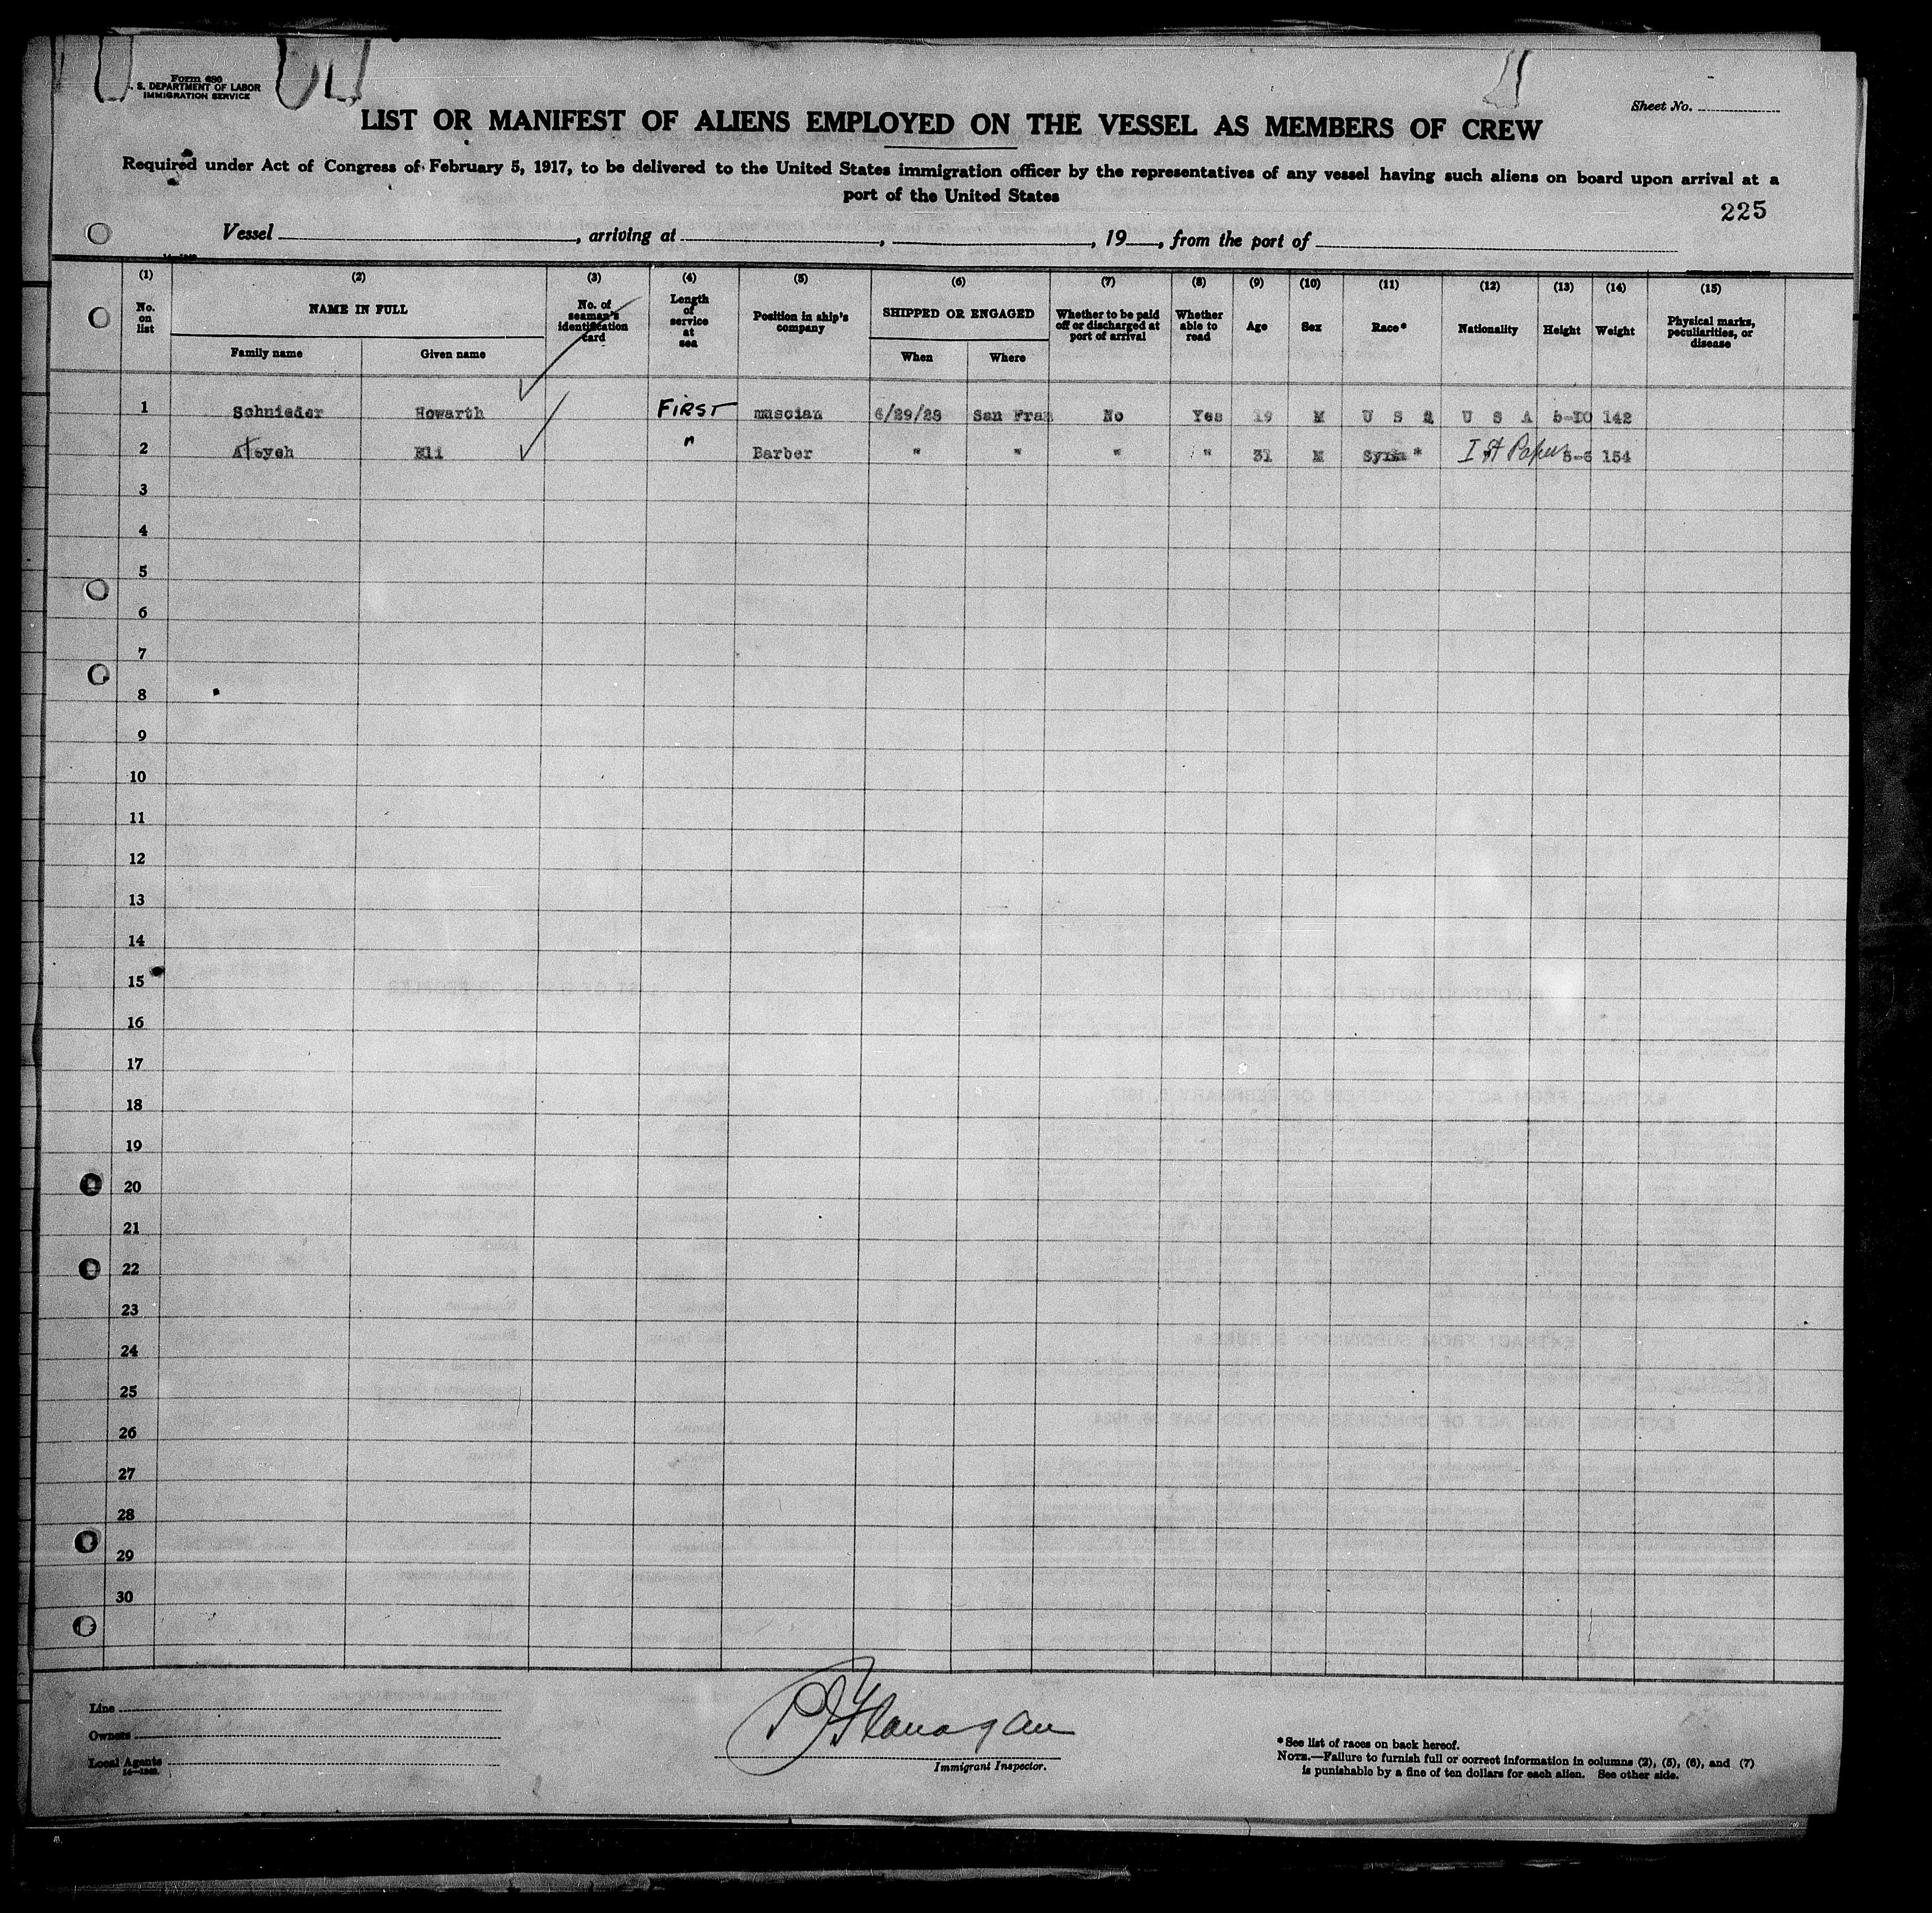 Form 680
S. DEPARTMENT OF LABOR
IMMIGRATION SERVICE
Sheet No.
LIST OR MANIFEST OF ALIENS EMPLOYED ON THE VESSEL AS MEMBERS OF CREW
Required under Act of Congress of February 5, 1917, to be delivered to the United States immigration officer by the representatives of any vessel having such aliens on board upon arrival at a
port of the United States
225
Vessel , arriving at , , 19 , from the port of
(1) (2) (3) (4) (5) (6) (7) (8) (9) (10) (11) (12) (13) (14) (15)
No. on list NAME IN FULL No. of seaman's identification card Length of service at sea Position in ship's company SHIPPED OR ENGAGED Whether to be paid off or discharged at port of arrival Whether able to read Age Sex Race* Nationality Height Weight Physical marks, peculiarities, or disease
Family name Given name When Where
1 Schnieder Howarth FIRST muscian 6/29/28 San Fran No Yes 19 M U S A U S A 5-10 142
2 Ateyeh Eli " Barber " " " " 31 M Syria * 1st Paper 5-6 154
3
4
5
6
7
8
9
10
11
12
13
14
15
16
17
18
19
20
21
22
23
24
25
26
27
28
29
30
Line
Owners
Local Agents
14—1240
P J Flanagan
Immigrant Inspector.
*See list of races on back hereof.
NOTE.—Failure to furnish full or correct information in columns (2), (5), (6), and (7)
is punishable by a fine of ten dollars for each alien. See other side.